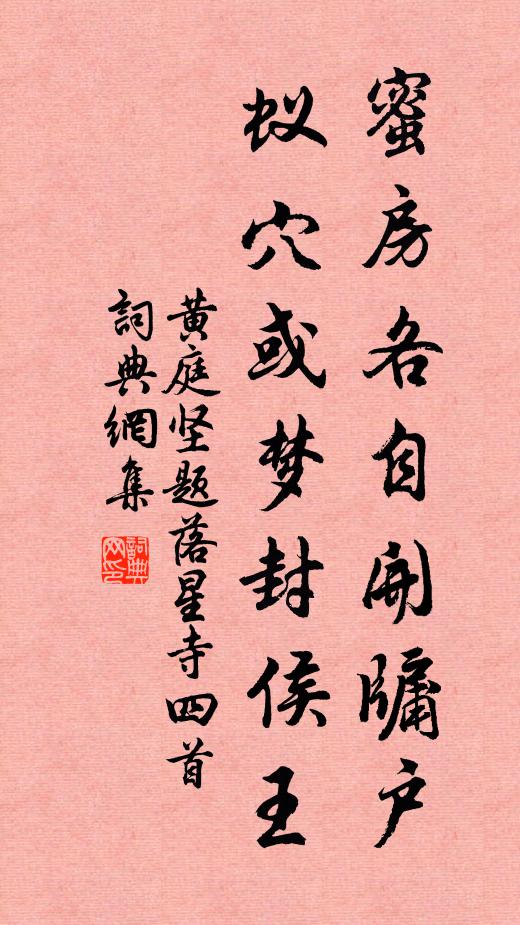 蜜房各自开牖户
蚁穴或梦封侯王
黄庭坚题落星寺四首
詞典網集
詞典网印